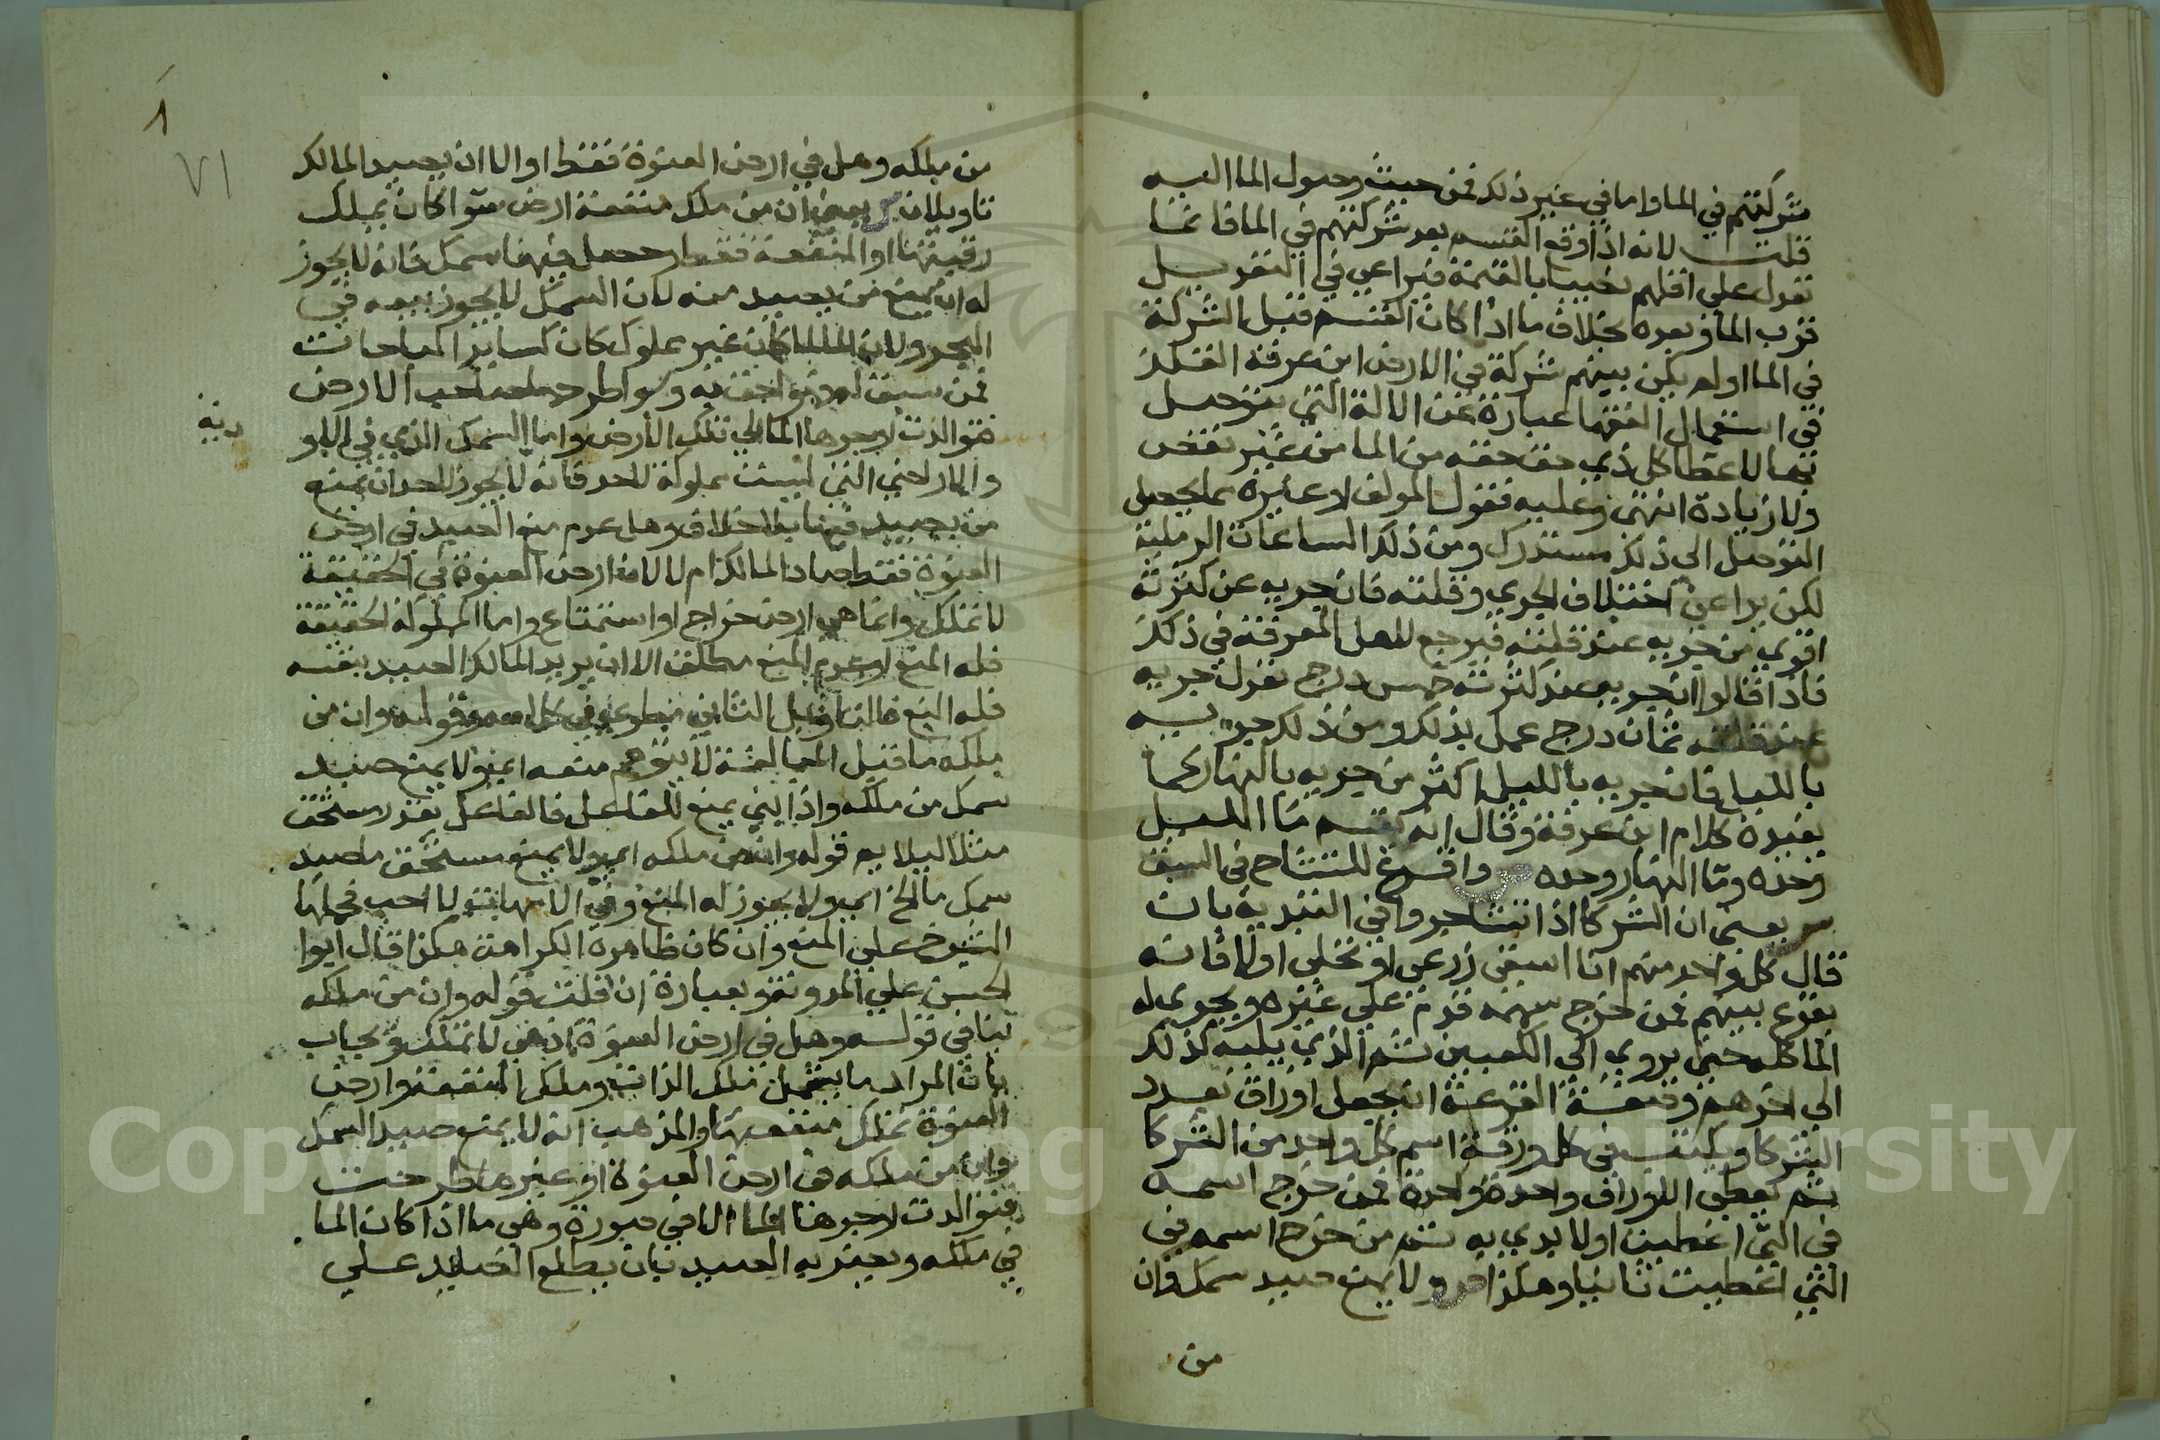 شركتهم في الما واما في غير ذلك فمن حيث وصول الما اليه
قلت لانه اذا وقع القسم بعد شركتهم في الما فانما
تقول على اقلهم نصيبا بالقيمة فيراعى في التقويل
قرب الما وبعده بخلاف ما اذا كان القسم قبل الشركة
في الما اولم يكن بينهم شركة في الارض ابن عرفة القلد
في استعمال الفقها عبارة عن الالة التي يتوصل
بها لاعطا كل ذي حق حقه من الما من غير نقص
ولا زيادة انتهى وعليه فقول المولف لا غيره مما يجعل
التوصل الى ذلك مستدرك ومن ذلك الساعات الرملية
لكن يراعى اختلاف الجري وقلته فان جريه عن كثرته
اقوى من جريه عند قلته فيرجع لاهل المعرفة في ذلك
فاذا قالوا ان جريه عند كثرته خمس درج تعزل جريه
عند قلته ثمان درج عمل بذلك ومن ذلك جريه
بالليل فان جريه بالليل اكثر من جريه بالنهار كما
يفيده كلام ابن عرفة وقال انه يقسم ما الليل
وحده وما النهار وحده ص واقرع للتشاح في السبق
ش يعني ان الشركا اذا تشاحروا في التبدية بان
قال كل واحد منهم انا اسقي زرعي او نخلي اولا فانه
يقرع بينهم فمن خرج سهمه قدم على غيره ويجري له
الما كله حتى يروي الى الكعبين ثم الذي يليه كذلك
الى اخرهم وصفة القرعة ان يجعل اوراق بعدد
الشركا ويكتب في كل ورقة اسم كل واحد من الشركا
ثم يعطى الاوراق واحدة واحدة فمن خرج اسمه
في التي اعطيت اولا بدي به ثم من خرج اسمه في
التي اعطيت ثانيا وهكذا ص ولا يمنع صيد سمك وان
من
٨
٧١
من ملكه وهل في ارض العنوة فقط او الا ان يصيد المالك
تاويلان ش يعني ان من ملك منفعة ارض سوا كان يملك
رقبتها او المنفعة فقط وحصل فيها سمك فانه لا يجوز
له ان يمنع من يصيد منه لان السمك لا يجوز بيعه في
البحر ولان الما لما كان غير مملوك كان كساير المباحات
فمن سبق له فهو احق به وسوا طرحها صاحب الارض
فتوالدت او جرها الما الى تلك الارض واما السمك الذي في الاو
دية
والاراضي التي ليست مملوكة لاحد فانه لا يجوز لاحد ان يمنع
من يصيد فيها بلا خلاف وهل عدم منع الصيد في ارض
العنوة فقط صاد المالك ام لا لان ارض العنوة في الحقيقة
لا تملك وانما هي ارض خراج او استمتاع واما المملوكة الحقيقة
فله المنع او عدم المنع مطلق الا ان يريد المالك الصيد بنفسه
فله المنع فالتاويل الثاني مطوي في كلامه وقوله وان من
ملكه ما قبل المبالغة لا يتوهم منعه اي ولا يمنع صيد
سمك من ملكه واذا بني يمنع للفاعل فالفاعل يقدر مستحق
مثلا ليلايم قوله وان من ملكه اي ولا يمنع مستحق ما صيد
سمك مالخ اي ولا يجوز له المنع وفي الامهات لا احب فحملها
الشيوخ على المنع وان كان ظاهره الكراهة هكذا قال ابوا
الحسن على المدونة وبعبارة ان قلت قوله وان من ملكه
ينافي قوله وهل في ارض العنوة اذ هي لا تملك ويجاب
بان المراد ما يشمل ملك الذات وملك المنفعة وارض
العنوة تملك منفعتها والمذهب انه لا يمنع صيد السمك
وان من ملكه في ارض العنوة او غيرها طرحت
فتوالدت او جرها الما الا في صورة وهي ما اذا كان الما
في ملكه ويضر به الصيد بان يطلع الصايد على